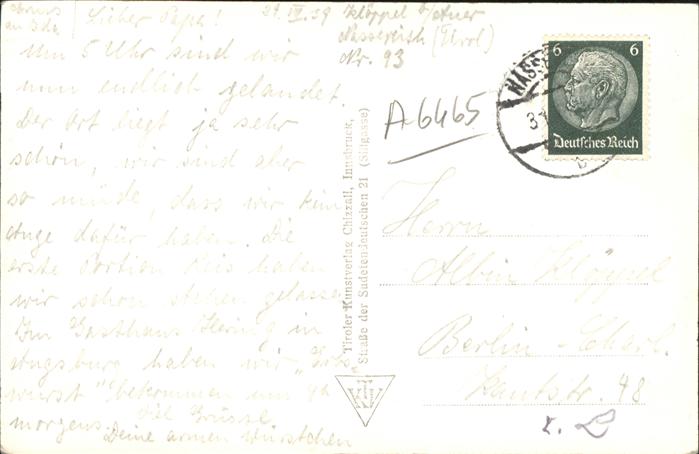 Lieber Papa!
Klöppel b/Auer
Nassereith (Tirol)
Nr. 93
Um 5 Uhr sind wir
nun endlich gelandet.
Der Ort liegt ja sehr
schön, wir sind aber
so müde, dass wir kein
Auge dafür haben. Die
erste Portion Reis haben
wir schon stehen gelassen.
Im Gasthaus Hering in
Augsburg haben wir „Brüh-
wurst" bekommen um
morgens.
Viel Grüsse
Deine armen Würstchen
Tiroler Kunstverlag Chizzali, Innsbruck,
Straße der Sudetendeutschen 21 (Sillgasse)
A6465
6 6
Deutsches Reich
NASSE
Herrn
Albin Klöppel
Berlin-Charl.
Kantstr. 48